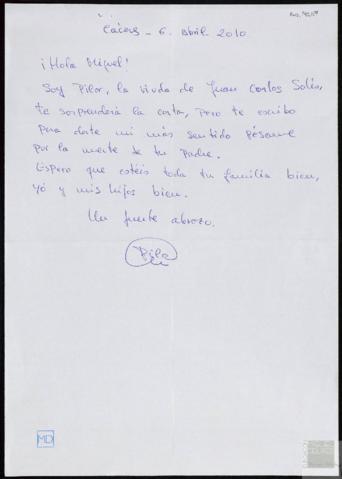 Cáceres - 6. Abril 2010
¡Hola Miguel!
Soy Pilar, la viuda de Juan Carlos Solís,
te sorprenderá la carta, pero te escribo
para darte mi más sentido pésame
por la muerte de tu Padre.
Espero que estéis toda tu familia bien,
yó y mis hijos bien.
Un fuerte abrazo.
Pilar
MD